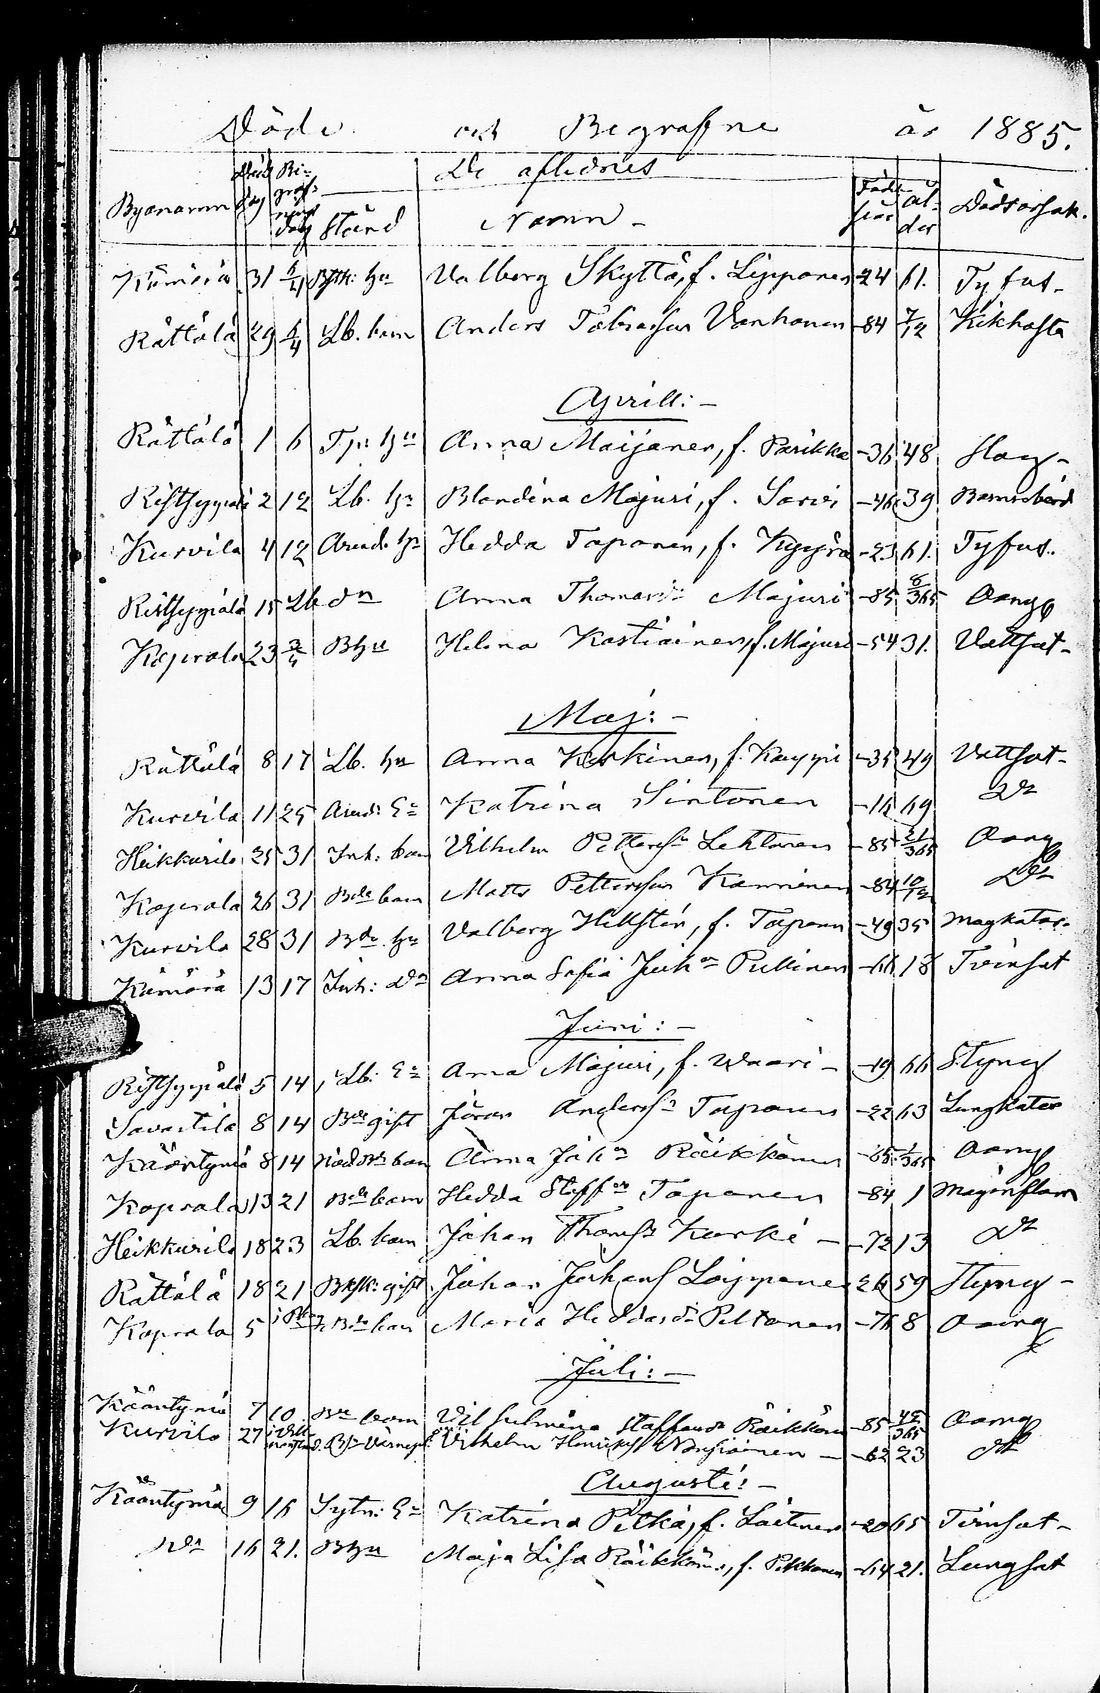 Döde och Begrafne år 1885.
De aflednes
Byanamn Död dag Begrafnings dag Stånd Namn - Född år ålder Dödsorsak.
Kämärä 31 6/4 hu Valborg Skyttä, f. Lipponen -24 61. Tyfus-
Rättälä 29 6/4 Lb. barn Anders Tobiasson Vanhanen -84 7/12 Kikhosta
Aprill: -
Rättälä 1 6 hu Anna Maijanen, f. Parikka -36 48 Slag-
Ristseppälä 2 12 Lb. hu Blandina Majuri, f. -46 39 Barnsbörd
Kurvila 4 12 Arend. hu Hedda Toponen, f. -23 61. Tyfus.
Ristseppälä 15 Lb dr Anna Thomasdr Majuri -85 6/365 Oang
Koprala 23 3/5 Bhu Helena Kostiainen, f. Majuri -54 31. Vattsot-
Maj: -
Rättälä 8 17 Lb. hu Anna Koskinen, f. Kauppi -35 49 Vattsot-
Kurvila 11 25 Arend: Ea Katrina Sintonen -16 69 Do
Heikkurila 25 31 Inh: barn Vilhelm Petterss. Lehtonen -85 21/365 Oang
Koprala 26 31 Bde barn Matts Petterson Kanninen -84 10/12 Do
Kurvila 28 31 Bde hu Valborg Hellstén, f. Toponen -49 35 Magkatar-
Kämärä 13 17 Inh: Dr Anna Sofia Joh.dr Pullinen -66 18 Tvinsot
Juni: -
Ristseppälä 5 14 Lb. Ea Anna Majuri, f. Waari - -19 66 Styng
Savastila 8 14 Bde gift Göran Anderss. Toponen -22 63 Lungkatar
Kääntymä 8 14 barn Anna Joh.dr Räikkönen -85 1/365 Oang
Koprala 13 21 Bde barn Hedda Steff.dr Toponen -84 1 Maginflam
Heikkurila 18 23 Lb. barn Johan Thomss. Karhi - -72 13 Do
Rättälä 18 21 gift Johan Johanss Loipponen 26 59 Styng -
Koprala 5 Bde barn Maria Heddasdr Peltonen -76 8 Oang
Juli: -
Kääntymä 7 10 Bde barn Vilhelmina Staffansdr Räikkönen -85 42/365 Oang
Kurvila 27 Vilhelm Henrikss - -62 23 Do
Augusti: -
Kääntymä 9 16 Sytn: Ea Katrina Pitkä, f. Laitinen -20 65 Tvinsot-
Do 16 21. Bhu Maja Lisa Räikkönen, f. Pekkanen -64 21. Lungsot